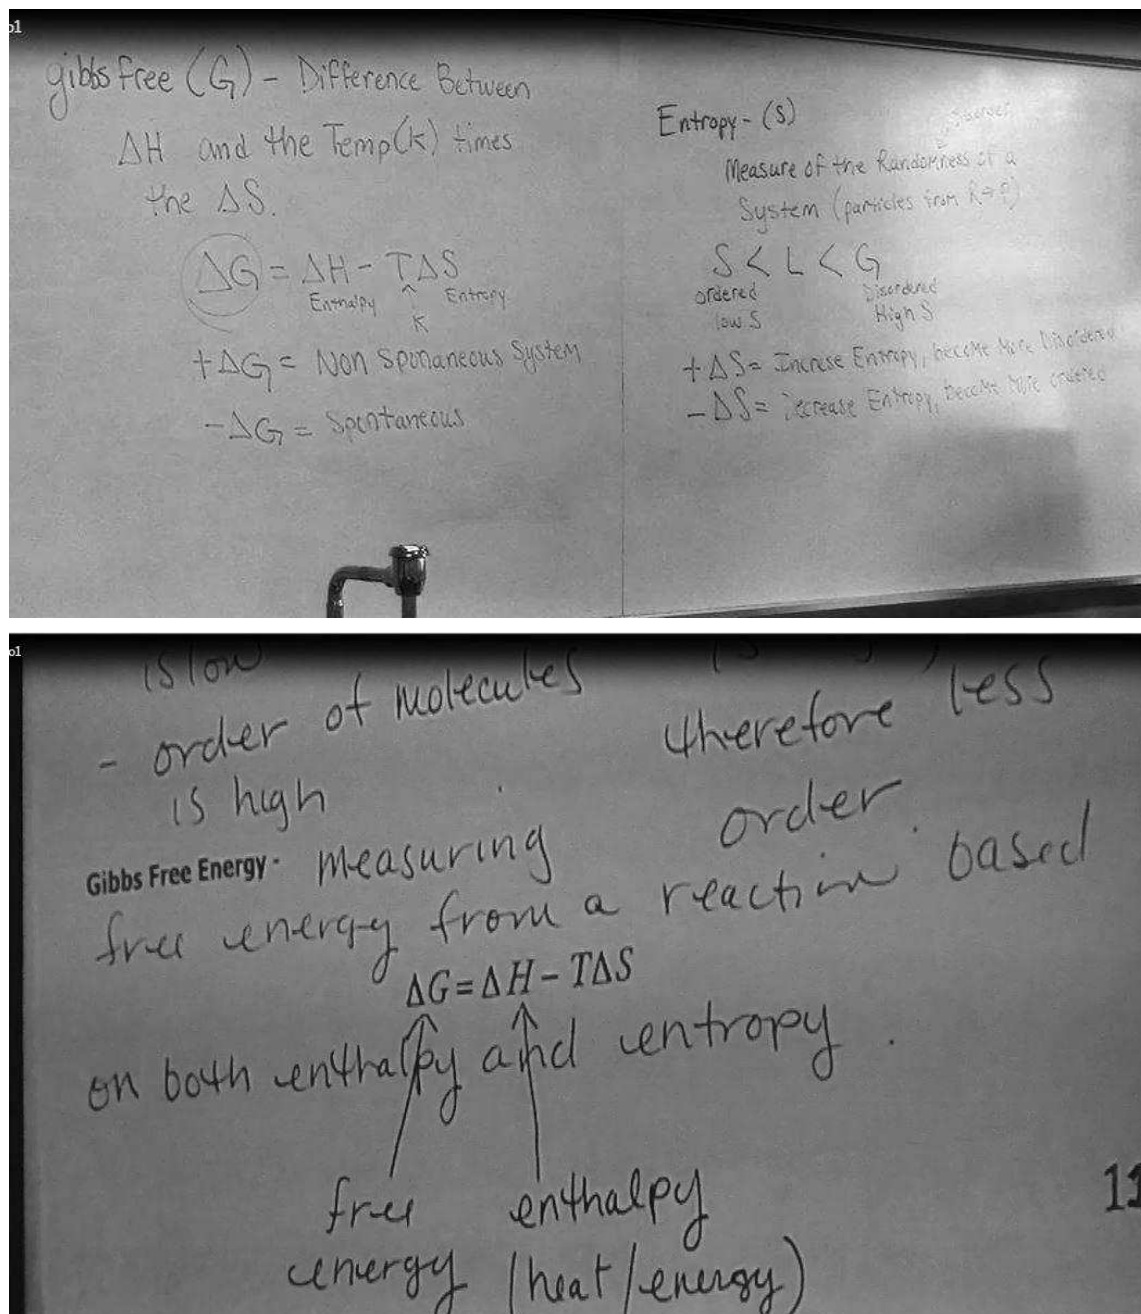 o1
gibbs free (G) - Difference Between
ΔH and the Temp(K) times
the ΔS.
ΔG = ΔH - TΔS
Enthalpy ↑ Entropy
K
+ΔG = Non Sponaneous System
-ΔG = Spontaneous
Entropy - (S)
Measure of the Randomness of a
System (particles from R→P)
S < L < G
ordered Disordered
low S High S
+ΔS = Increse Entropy, become More Disordered
-ΔS = Decrease Entropy, become More ordered
o1
is low
- order of molecules
is high
therefore less
order.
Gibbs Free Energy - measuring
free energy from a reaction based
ΔG = ΔH - TΔS
on both enthalpy and entropy.
free enthalpy
energy (heat/energy)